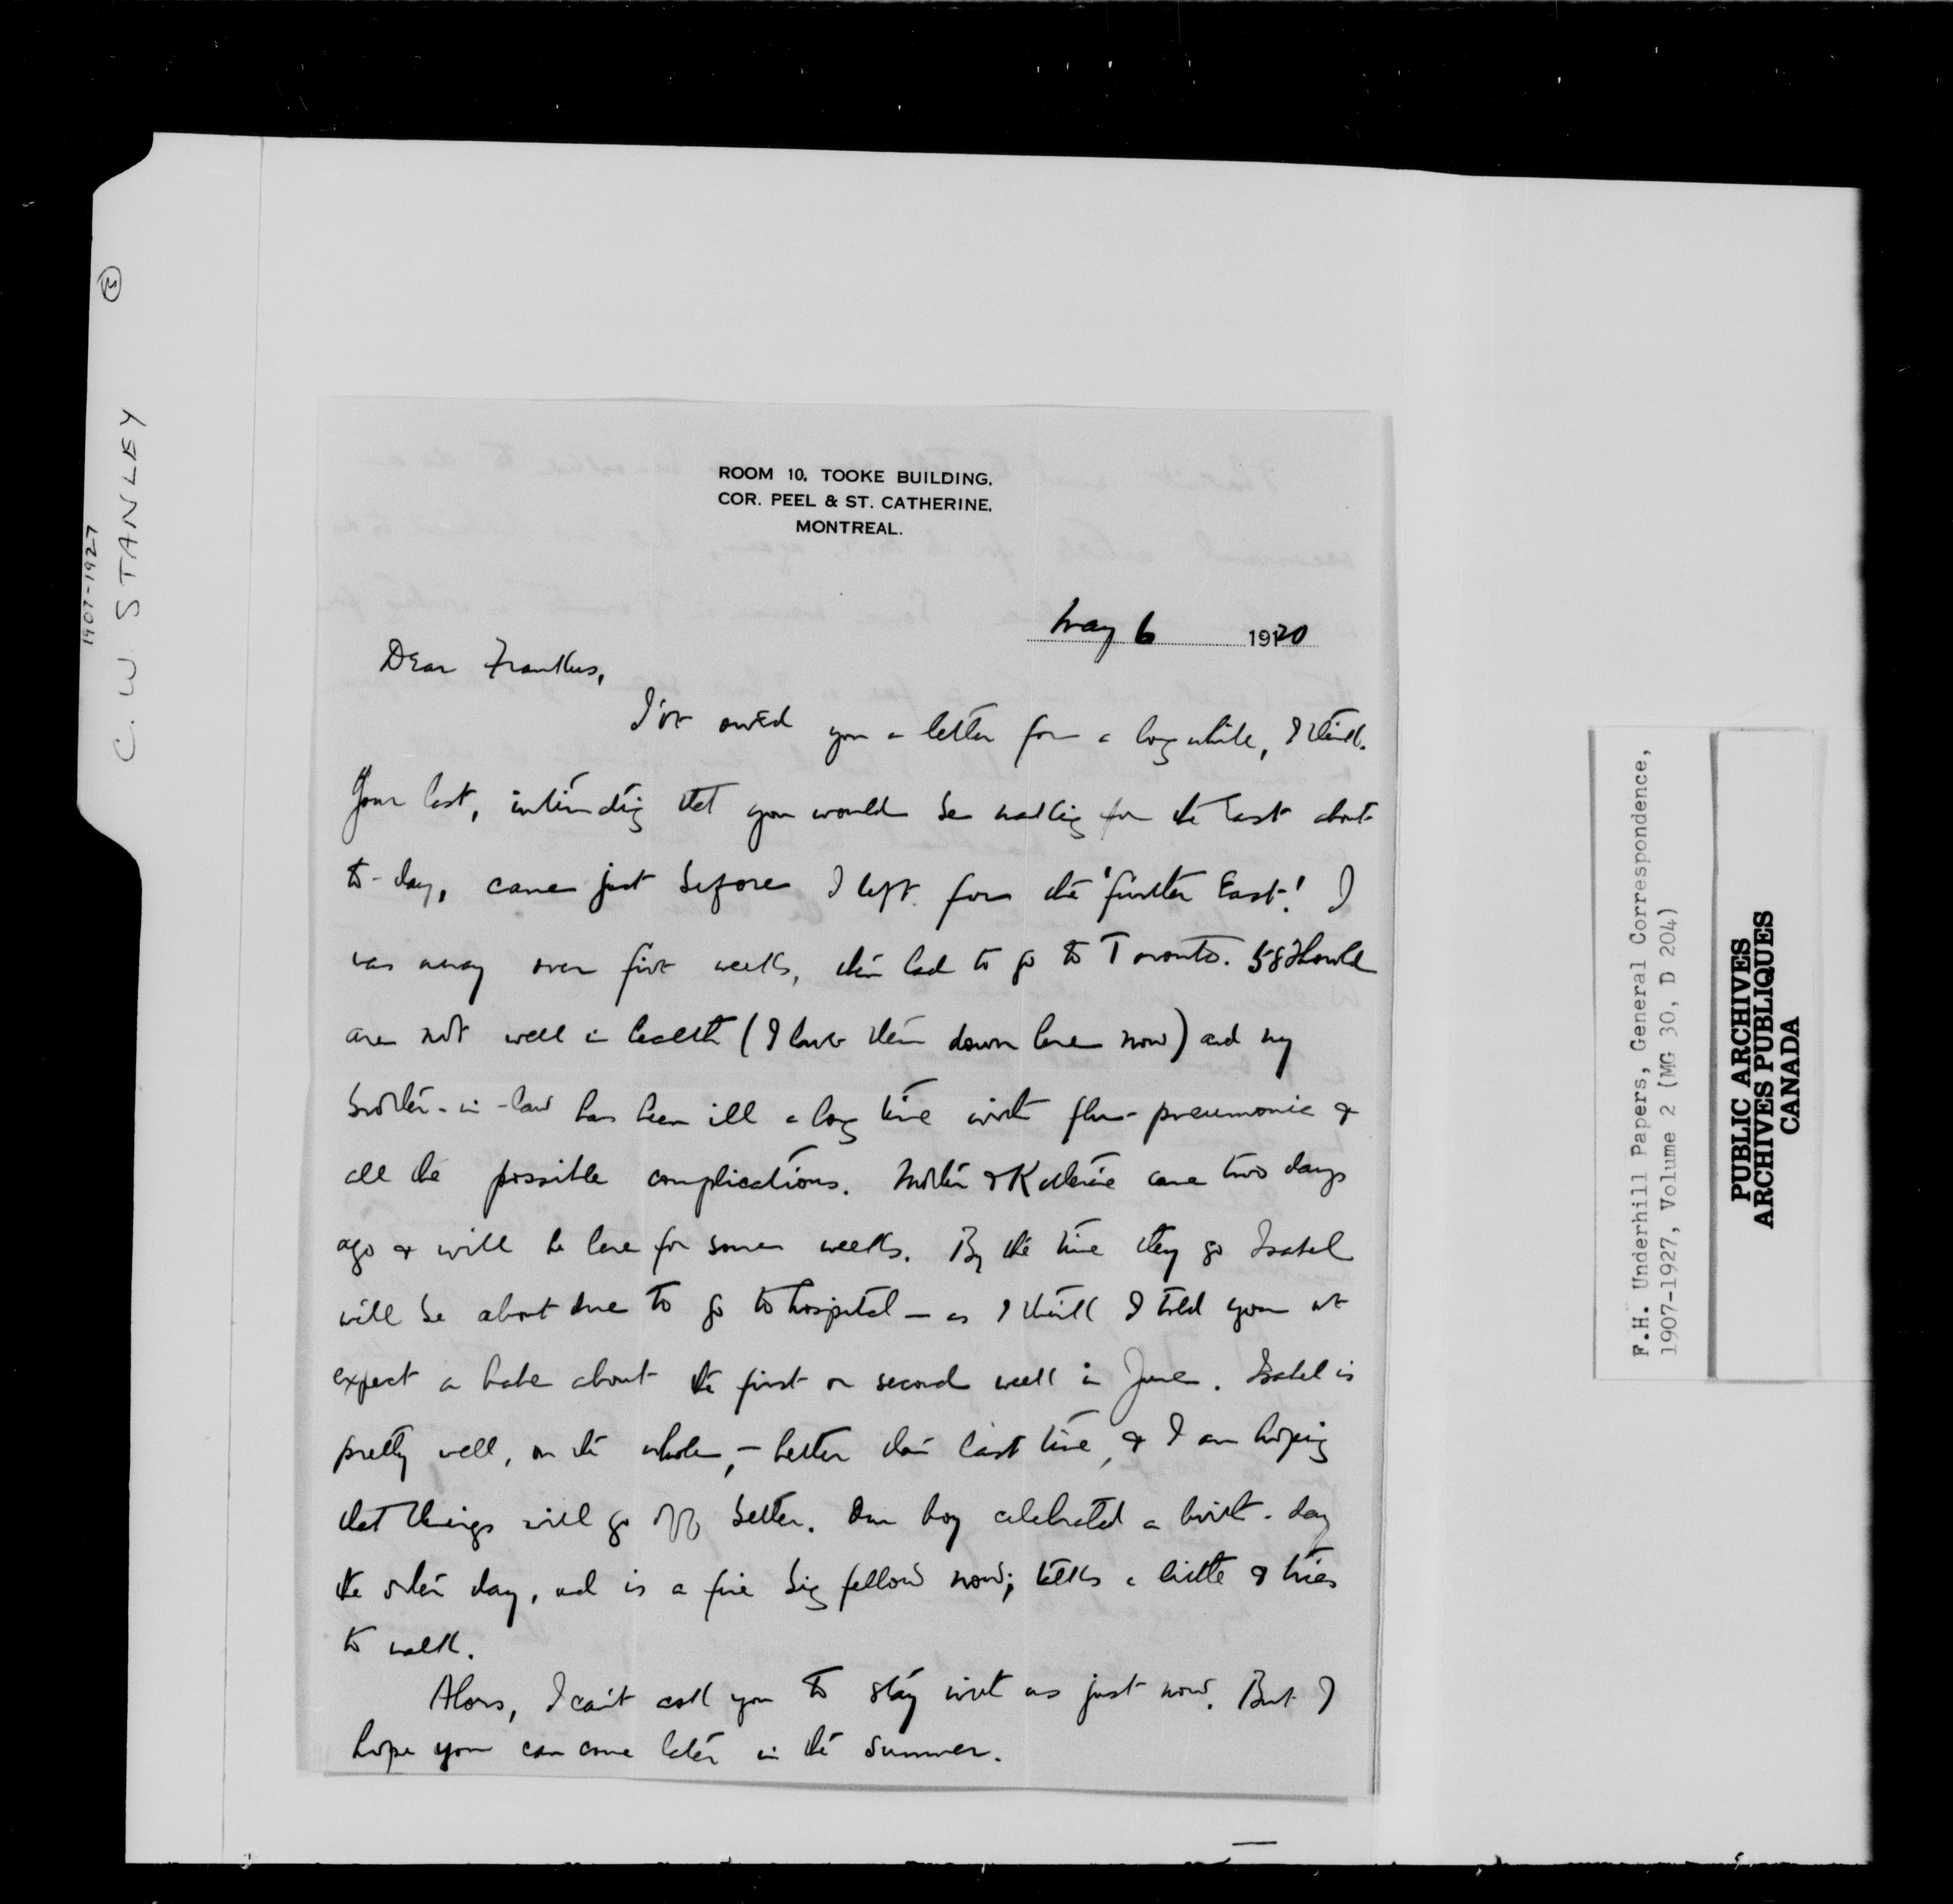 ROOM 10, TOOKE BUILDING,
COR. PEEL & ST. CATHERINE,
MONTREAL.
May 6 1920
Dear Frankus,
I've owed you a letter for a long while, I think.
Your last, intimating that you would be making for the East about
to-day, came just before I left for the 'further East'! I
was away over five weeks, then had to go to Toronto. 58 Howld
are not well in health (I have them down here now) and my
brother-in-law has been ill a long time with flu-pneumonia &
all the possible complications. Mother & Katherine came two days
ago & will be here for some weeks. By the time they go Isabel
will be about due to go to hospital — as I think I told you we
expect a babe about the first or second week in June. Isabel is
pretty well, on the whole, — better than last time, & I am hoping
that things will go off better. Our boy celebrated a birth-day
the other day, and is a fine big fellow now; talks a little & tries
to walk.
Alors, I can't ask you to stay with us just now. But I
hope you can come later in the summer.
C. W STANLEY
1907-1927
F.H. Underhill Papers, General Correspondence,
1907-1927, Volume 2 (MG 30, D 204)
PUBLIC ARCHIVES
ARCHIVES PUBLIQUES
CANADA